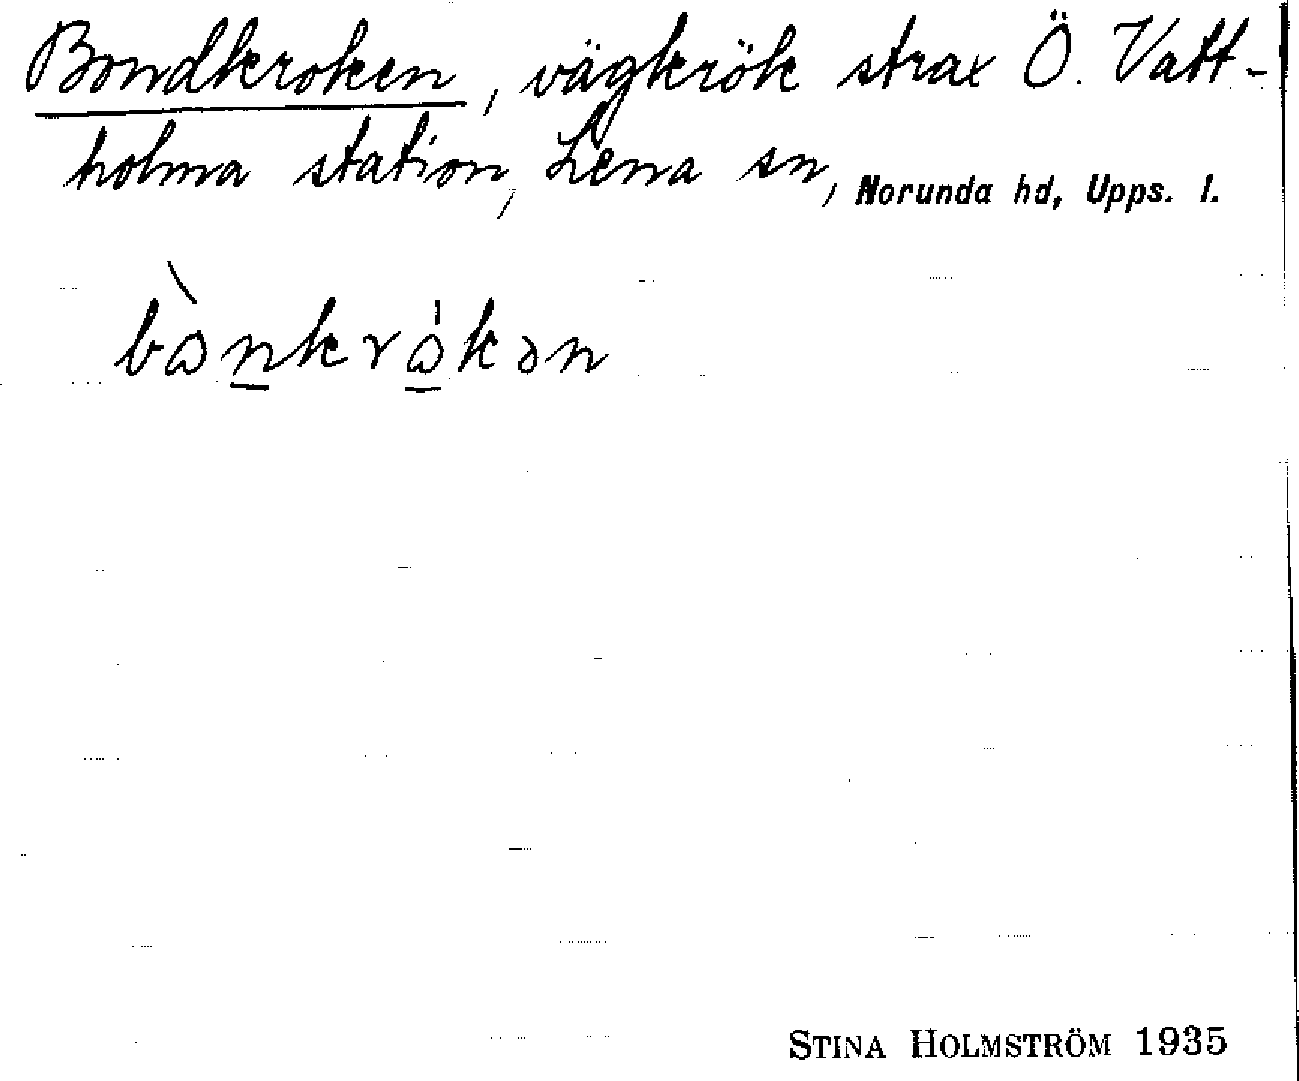 Bondkroken, vägkrök strax Ö. Vatt-
holma station, Lena sn, Norunda hd, Upps. l.
bònkrókən
STINA HOLMSTRÖM 1935